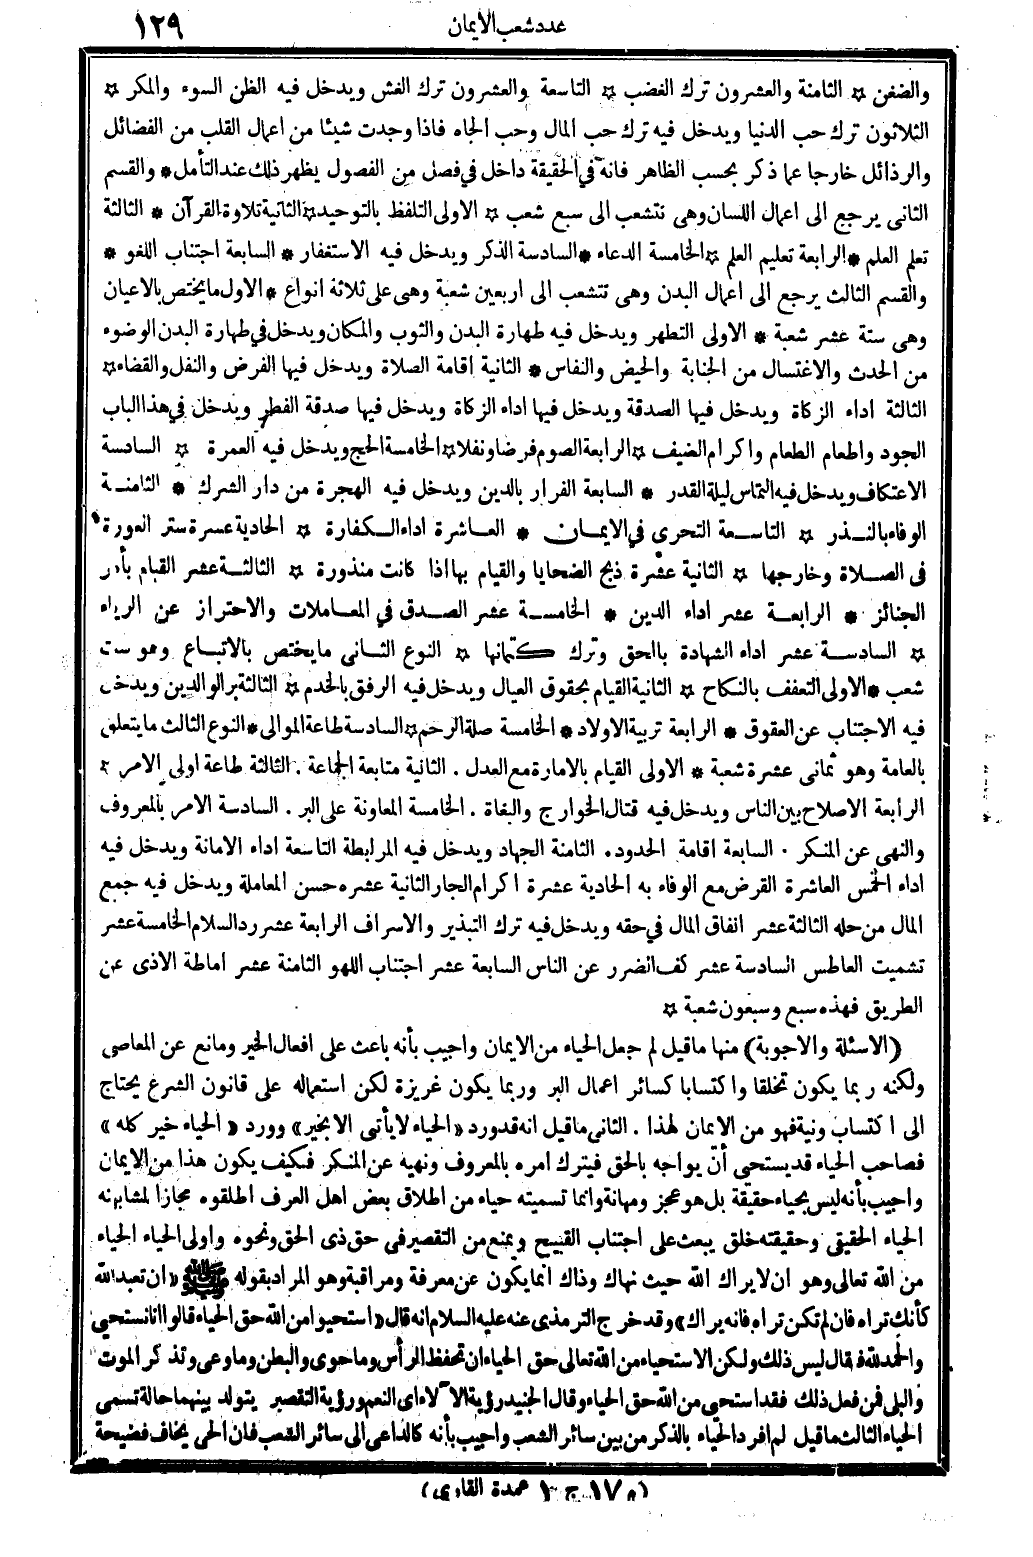 عدد شعب الأيمان
١٢٩
والضغن ☆ الثامنة والعشرون ترك الغضب ☆ التاسعة والعشرون ترك الغش ويدخل فيه الظن السوء والمكر ☆
الثلاثون ترك حب الدنيا ويدخل فيه ترك حب المال وحب الجاه فاذا وجدت شيئا من اعمال القلب من الفضائل
والرذائل خارجا عما ذكر بحسب الظاهر فانه في الحقيقة داخل في فصل من الفصول يظهر ذلك عند التأمل * والقسم
الثانى يرجع الى اعمال اللسان وهى تتشعب الى سبع شعب ☆ الاولى التلفظ بالتوحيد ☆ الثانية تلاوة القرآن * الثالثة
تعلم العلم * الرابعة تعليم العلم ☆ الخامسة الدعاء * السادسة الذكر ويدخل فيه الاستغفار * السابعة اجتناب اللغو *
والقسم الثالث يرجع الى اعمال البدن وهى تتشعب الى اربعين شعبة وهى على ثلاثة انواع * الاول ما يختص بالاعيان
وهى ستة عشر شعبة * الاولى التطهر ويدخل فيه طهارة البدن والثوب والمكان ويدخل في طهارة البدن الوضوء
من الحدث والاغتسال من الجنابة والحيض والنفاس * الثانية اقامة الصلاة ويدخل فيها الفرض والنفل والقضاء ☆
الثالثة اداء الزكاة ويدخل فيها الصدقة ويدخل فيها اداء الزكاة ويدخل فيها صدقة الفطر ويدخل في هذا الباب
الجود واطعام الطعام واكرام الضيف ☆ الرابعة الصوم فرضا ونفلا ☆ الخامسة الحج ويدخل فيه العمرة ☆ السادسة
الاعتكاف ويدخل فيه التماس ليلة القدر * السابعة الفرار بالدين ويدخل فيه الهجرة من دار الشرك * الثامنة
الوفاء بالنذر ☆ التاسعة التحرى في الايمان * العاشرة اداء الكفارة ☆ الحادية عسرة ستر العورة
فى الصلاة وخارجها ☆ الثانية عشرة ذبح الضحايا والقيام بها اذا كانت منذورة ☆ الثالثة عشر القيام بأمر
الجنائز * الرابعة عشر اداء الدين * الخامسة عشر الصدق في المعاملات والاحتراز عن الرياء
☆ السادسة عشر اداء الشهادة بالحق وترك كتمانها ☆ النوع الثانى ما يختص بالاتباع وهو ست
شعب * الاولى التعفف بالنكاح ☆ الثانية القيام بحقوق العيال ويدخل فيه الرفق بالخدم ☆ الثالثة بر الوالدين ويدخل
فيه الاجتناب عن العقوق * الرابعة تربية الاولاد * الخامسة صلة الرحم ☆ السادسة طاعة الموالى * النوع الثالث ما يتعلق
بالعامة وهو ثمانى عشرة شعبة * الاولى القيام بالامارة مع العدل . الثانية متابعة الجماعة . الثالثة طاعة اولى الامر ☆
الرابعة الاصلاح بين الناس ويدخل فيه قتال الخوارج والبغاة . الخامسة المعاونة على البر . السادسة الامر بالمعروف
والنهى عن المنكر . السابعة اقامة الحدود. الثامنة الجهاد ويدخل فيه المرابطة التاسعة اداء الامانة ويدخل فيه
اداء الخمس العاشرة القرض مع الوفاء به الحادية عشرة اكرام الجار الثانية عشره حسن المعاملة ويدخل فيه جمع
المال من حله الثالثة عشر انفاق المال في حقه ويدخل فيه ترك التبذير والاسراف الرابعة عشر رد السلام الخامسة عشر
تشميت العاطس السادسة عشر كف الضرر عن الناس السابعة عشر اجتناب اللهو الثامنة عشر اماطة الاذى عن
الطريق فهذه سبع وسبعون شعبة ☆
(الاسئلة والاجوبة) منها ما قيل لم جعل الحياء من الايمان واجيب بأنه باعث على افعال الخير ومانع عن المعاصى
ولكنه ربما يكون تخلقا واكتسابا كسائر اعمال البر وربما يكون غريزة لكن استعماله على قانون الشرع يحتاج
الى اكتساب ونية فهو من الايمان لهذا . الثانى ما قيل انه قد ورد «الحياء لا يأتى الا بخير» وورد «الحياء خير كله»
فصاحب الحياء قد يستحى أن يواجه بالحق فيترك امره بالمعروف ونهيه عن المنكر فكيف يكون هذا من الايمان
واجيب بأنه ليس بحياء حقيقة بل هو عجز ومهانة وانما تسميته حياء من اطلاق بعض اهل العرف اطلقوه مجازا لمشابهته
الحياء الحقيقى وحقيقته خلق يبعث على اجتناب القبيح ويمنع من التقصير فى حق ذى الحق ونحوه واولى الحياء الحياء
من الله تعالى وهو ان لا يراك الله حيث نهاك وذاك انما يكون عن معرفة ومراقبة وهو المراد بقوله ﷺ «ان تعبد الله
كأنك تراه فان لم تكن تراه فانه يراك» وقد خرج الترمذى عنه عليه السلام انه قال «استحيوا من الله حق الحياء قالوا انا نستحيى
والحمد لله فقال ليس ذلك ولكن الاستحياء من الله تعالى حق الحياء ان تحفظ الرأس وما حوى والبطن وما وعى وتذكر الموت
والبلى فمن فعل ذلك فقد استحيى من الله حق الحياء وقال الجنيد رؤية الآلاء اى النعم ورؤية التقصير يتولد بينهما حالة تسمى
الحياء الثالث ما قيل لم افرد الحياء بالذكر من بين سائر الشعب واجيب بأنه كالداعى الى سائر الشعب فان الحى يخاف فضيحة
(م ١٧ ج ١ عمدة القارى)